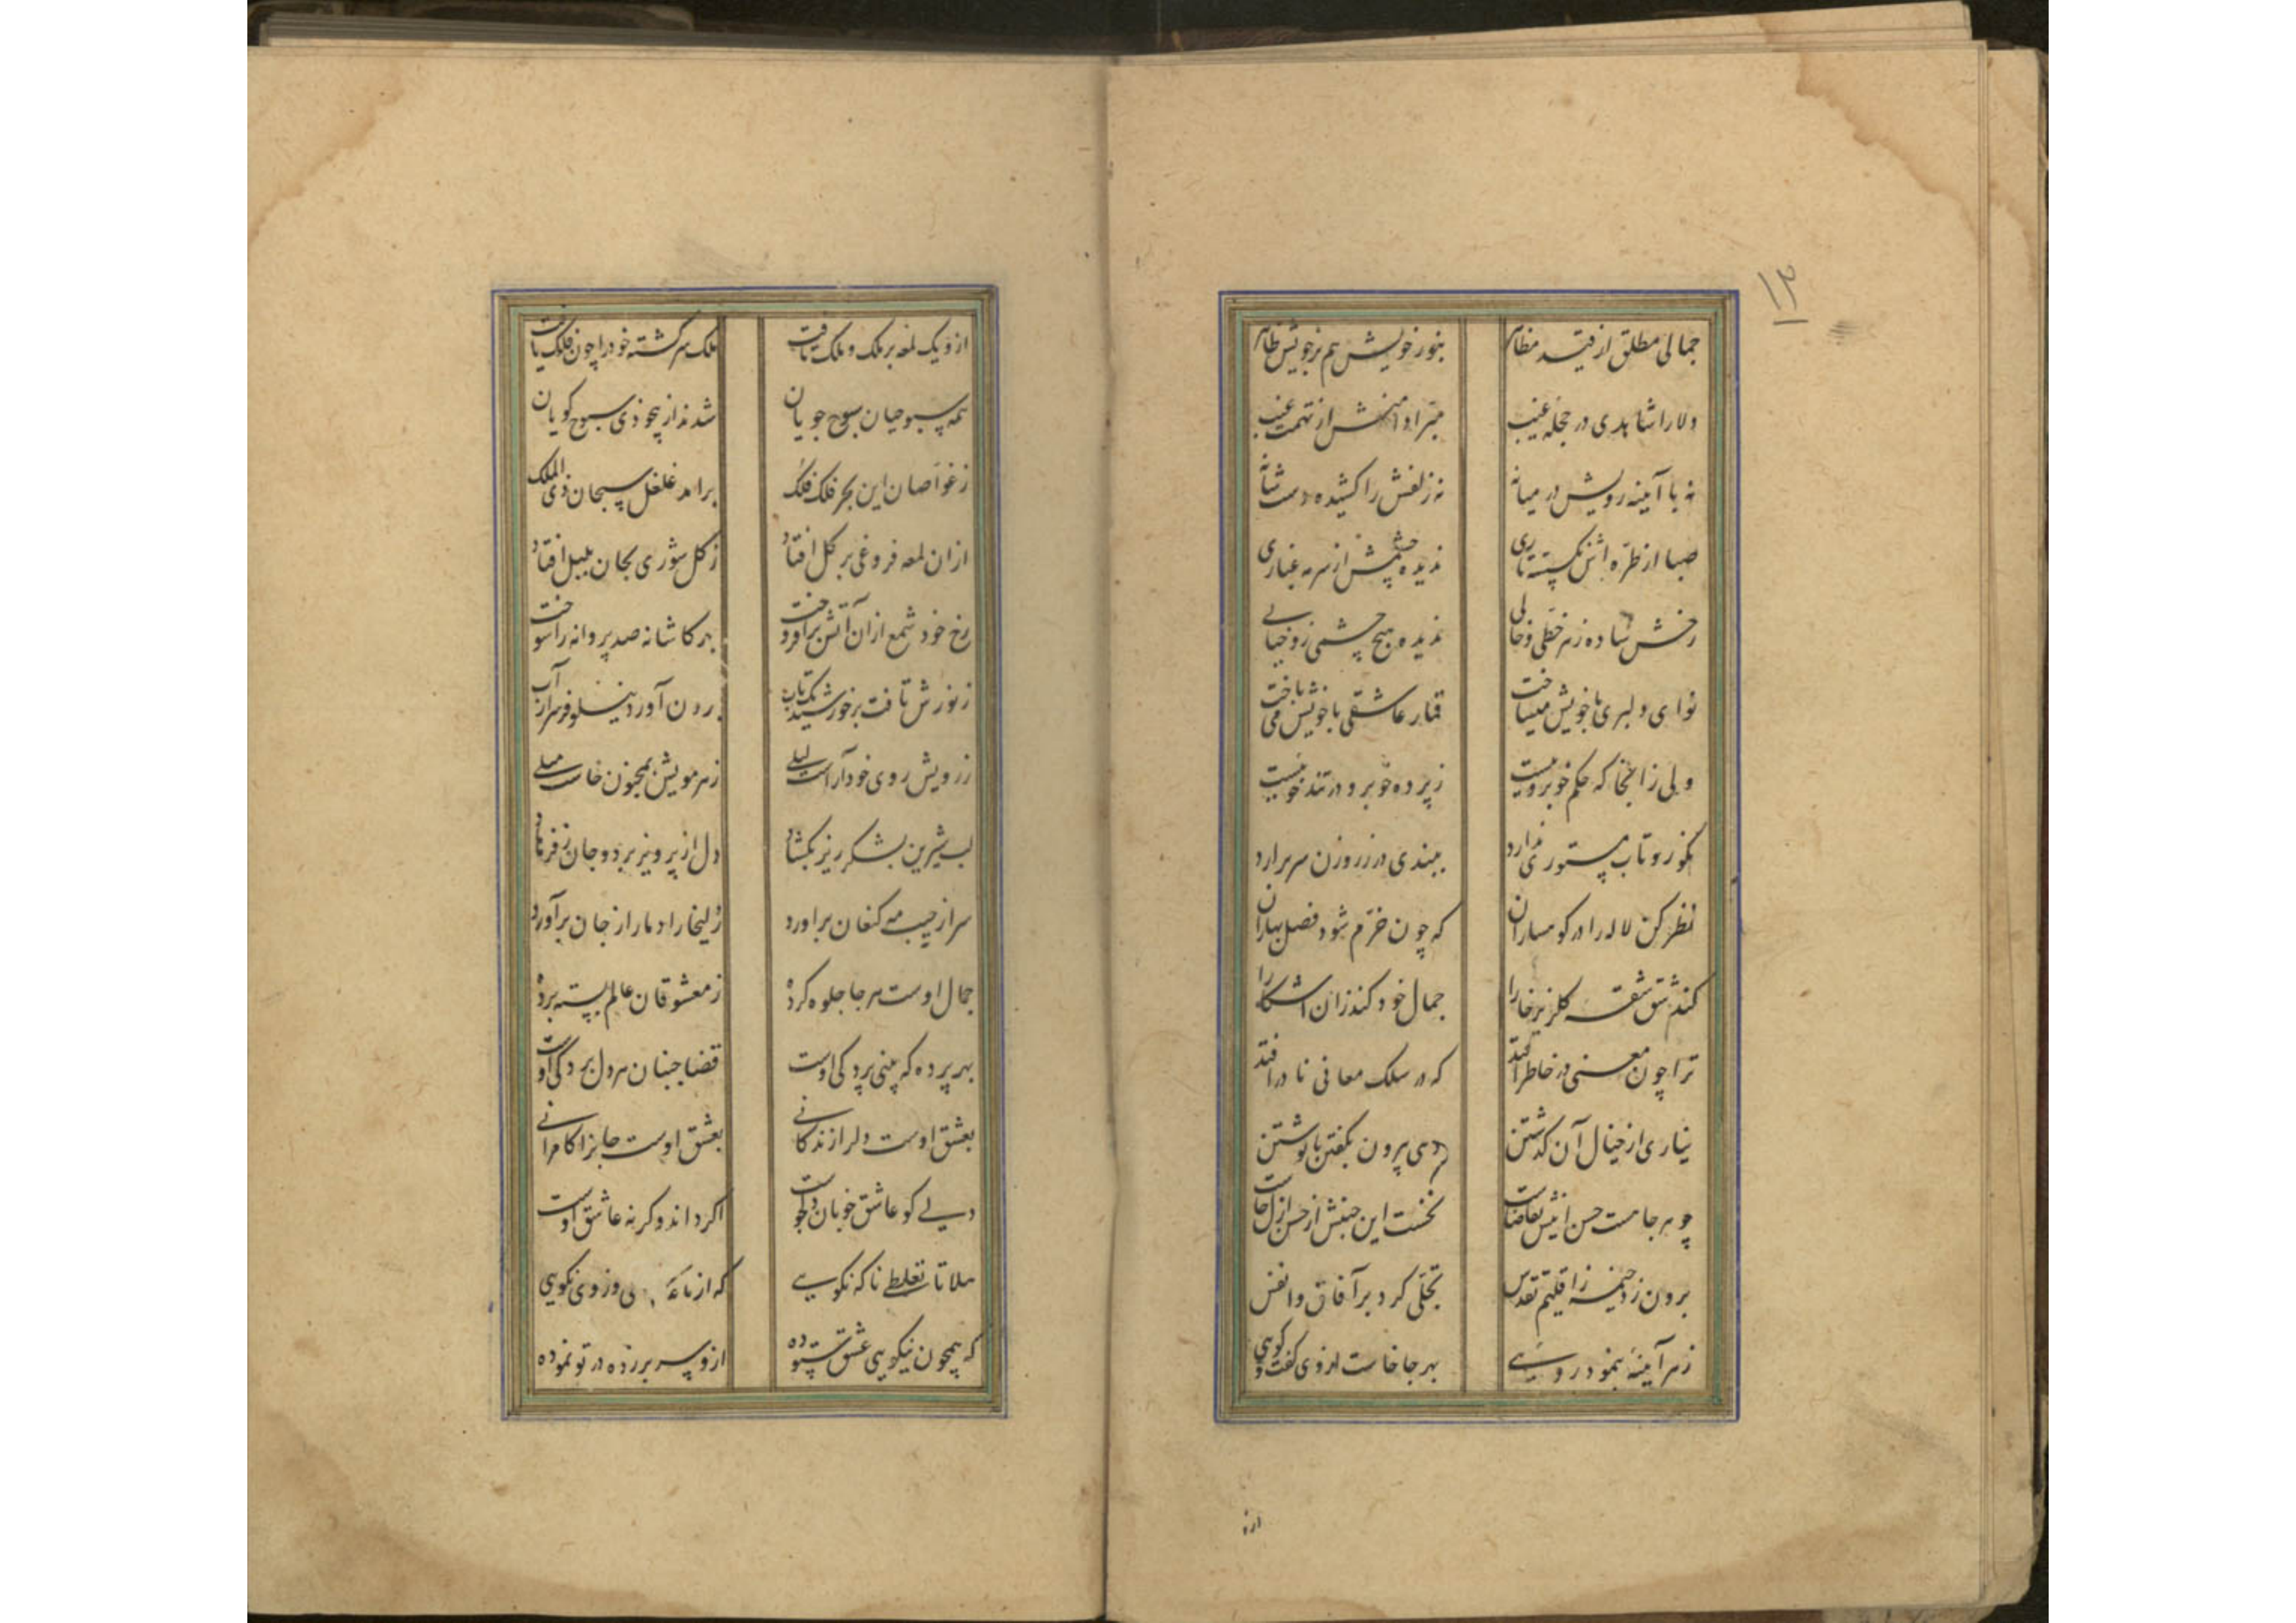 ۱۳
جمالی مطلق از قید مظاهر بنور خویش هم بر خویش ظاهر
دلارا شاهدی در حجله غیب مبرا دامنش از تهمت عیب
نه با آیینه رویش در میانه نه زلفش را کشیده دست شانه
صبا از طره اش نگسسته تاری ندیده چشمش از سرمه غباری
رخش ساده ز هر خطی و خالی ندیده هیچ چشمی زو خیالی
نوای دلبری با خویش میساخت قمار عاشقی با خویش می باخت
ولی زانجا که حکم خوبرویست ز پرده خوبرو در تند خوییست
نکورو تاب مستوری ندارد ببندی در ز روزن سر برارد
نظر کن لاله را در کوهساران که چون خرم شود فصل بهاران
کند شق شقه کلریز خارا جمال خود کند زان اشکارا
ترا چون معنی در خاطر افتد که در سلک معانی نادر افتد
نیاری از خیال آن کذشتن دهی بیرون بگفتن یا نوشتن
چو هر جا هست حسن اینش تقاضاست نخست این جنبش از حسن ازل خاست
برون زد خیمه ز اقلیم تقدس تجلی کرد بر آفاق و انفس
ز هر آیینه بنمود رویی بهر جا خاست از وی کفت و کویی
ازو
ازو یک لمعه بر ملک و ملک تافت ملک سرکشته خود را چون فلک یافت
همه سبوحیان سبوح جویان شدند از بیخودی سبوح کویان
ز غواصان این بحر فلک فلک برامد غلغل سبحان ذی الملک
ازان لمعه فروغی بر کل افتاد ز کل شوری بجان بلبل افتاد
رخ خود شمع ازان آتش برافروخت بهر کاشانه صد پروانه را سوخت
ز نورش تافت بر خورشید یک تاب برون آورد نیلوفر سر از آب
ز رویش روی خود آراست لیلی ز هر مویش بمجنون خاست میلی
لب شیرین بشکر ریز بکشاد دل از پرویز برد و جان ز فرهاد
سر از جیب مه کنعان براورد زلیخا را دمار از جان برآورد
جمال اوست هر جا جلوه کرده ز معشوقان عالم بسته پرده
بهر پرده که بینی پردکی اوست قضا جنبان هر دل بردکی اوست
بعشق اوست دلرا زندکانی بعشق اوست جانرا کامرانی
دلی کو عاشق خوبان دلجوست اکر داند وکر نه عاشق اوست
هلا تا نغلطی ناکه نکویی که از ما وز وی نکویی
که همچون نیکویی عشق ستوده ازو سر بر زده در تو نموده